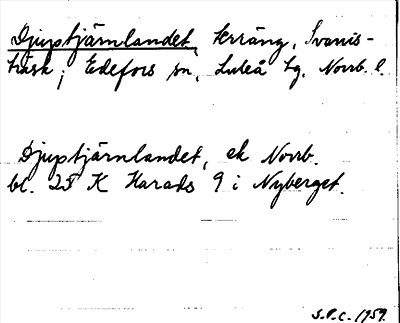 Djuptjärnlandet, terräng, Svanis-
träsk, Edefors sn, Luleå tg. Norrb. l.
Djuptjärnlandet, ek Norrb.
bl. 25 K Harads 9 i Nyberget.
S.P.C. 1959.